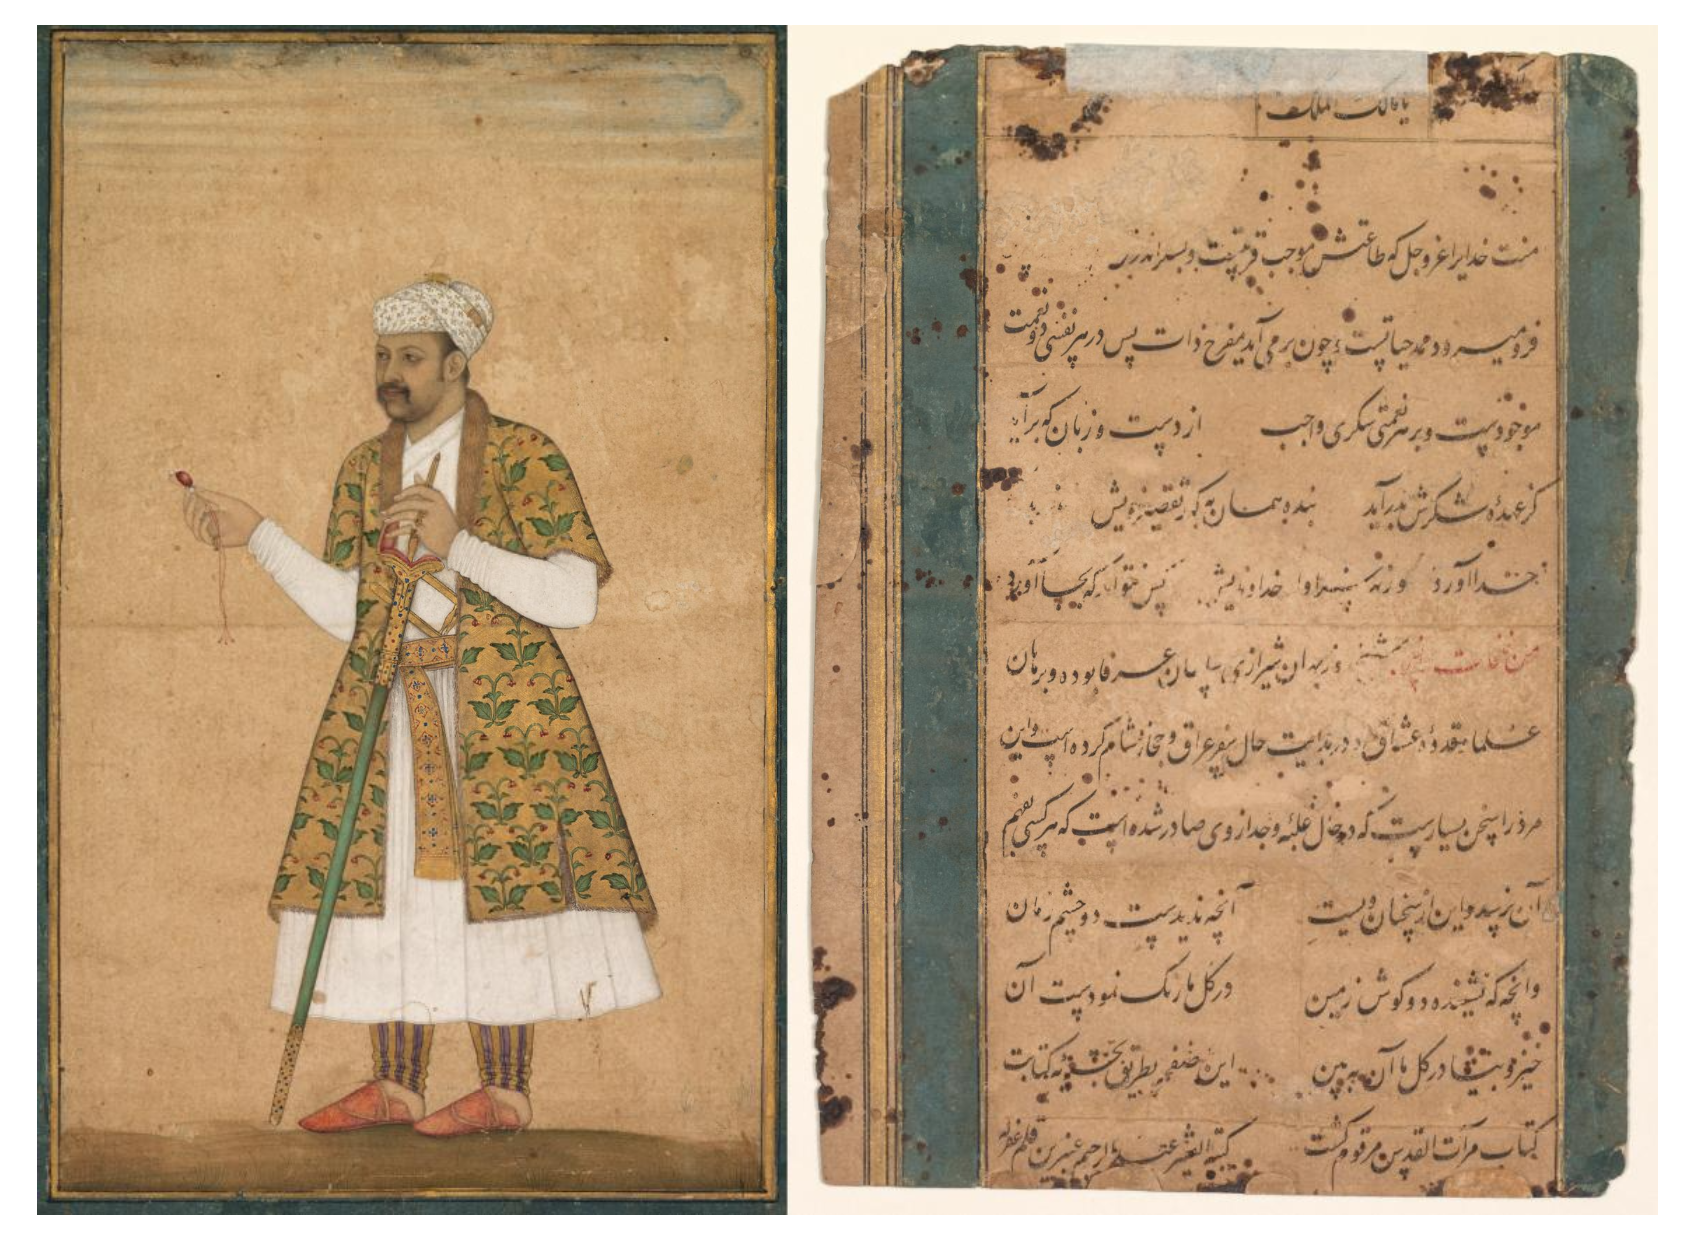 یا مالک الملک
منت خدایرا عز و جل که طاعتش موجب قربتست و بسراندرز
فرو میرود ممد حیاتست و چون بر می آید مفرح ذات پس در هر نفسی دو نعمت
موجودست و بر هر نعمتی شکری واجب از دست و زبان که برآید
کز عهدهٔ شکرش بدر آید بنده همان به که ز تقصیر خویش
خدا آورد ورنه سزاوار خداوندیش کس نتواند که بجا آورد
من نفحات شیخ روزبهان شیرازی سلطان عرفا بوده و برهان
علما و قدوهٔ عشاق در بدایت حال سفر عراق و حجاز و شام کرده است و این
مرد را سخن بسیارست که در حال غلبهٔ وجد از وی صادر شده است که هر کسی بفهم
آن نرسد و این از سخنان ویست آنچه ندیدست دو چشم زمان
وانچه که نشنیده دو گوش زمین در گل ما رنگ نمودست آن
خیز و بیا در گل ما آن ببین این صفحه بطریق کتابت
کتاب مرآت القدس مرقوم گشت کتبه عبدالرحیم عنبرین قلم غفرله